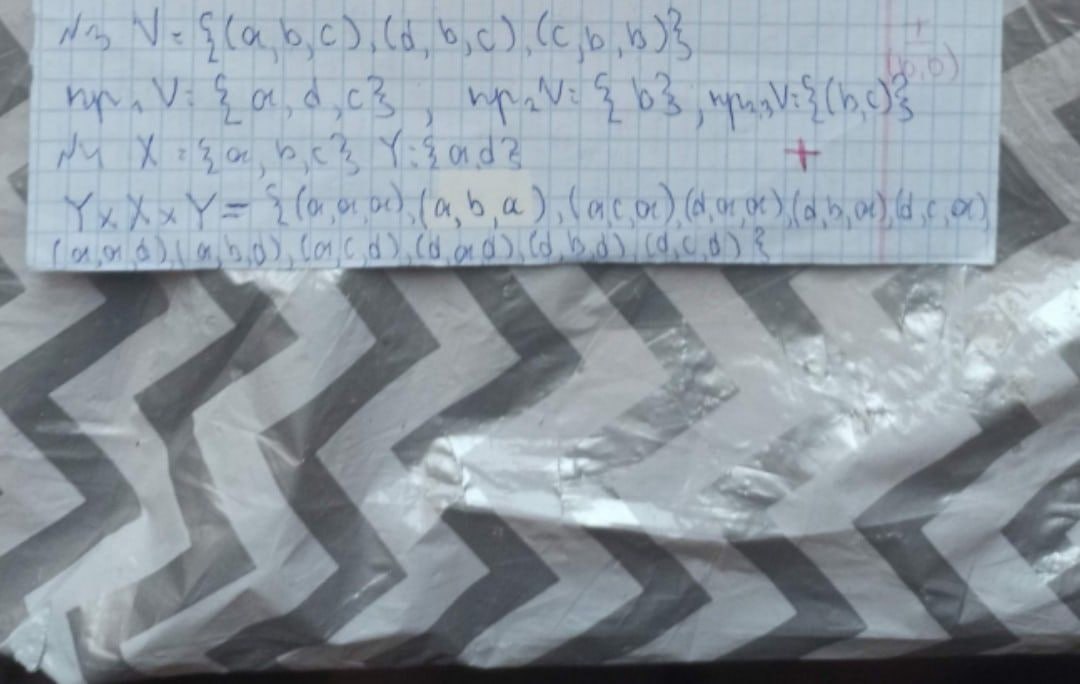 N3 V = {(a, b, c), (d, b, c), (c, b, b)}
пр₁ V = {a, d, c} ; пр₂ V = {b} ; пр₂,₃ V = {(b, c)}
(b, b)
N4 X = {a, b, c} Y = {a, d} +
Y x X x Y = {(a, a, a), (a, b, a), (a c, a) (d, a, a), (d, b, a), (d, c, a)
(a, a, d), (a, b, d), (a, c, d), (d, a d), (d, b, d), (d, c, d)}